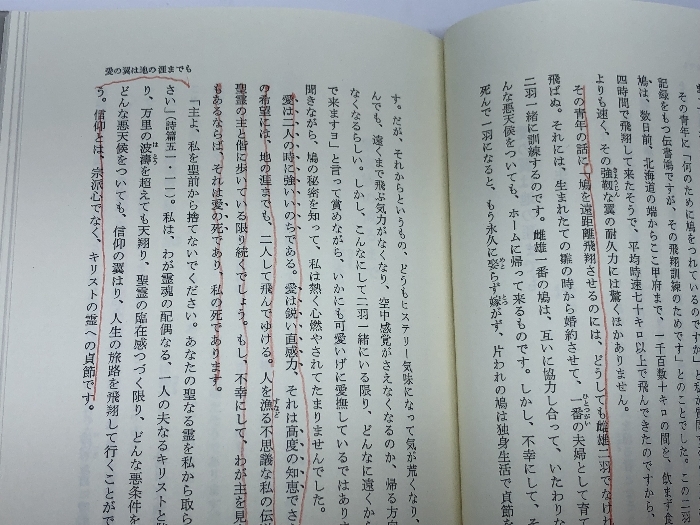 に「何のために鳩をつれているのですか」と
記録をもつ伝書鳩ですが、遠距離飛翔訓練のためです」とのことでした。この二羽
鳩は、数日前、北海道の端からここ甲府まで、一千百数十キロの間を、飲まず食
四時間で飛翔して来たそうで、平均時速七十キロ以上で飛んできたのですから、
よりも速く、その強靱な翼の耐久力には驚くほかありません。
その青年の話に「鳩を遠距離飛翔させるのには、どうしても雌雄二羽でなけ
飛ばぬ。それには、生まれたての雛の時から婚約させて、一番の夫婦として育て
二羽一緒に訓練するのです。雌雄一番の鳩は、互いに協力し合って、いたわりな
んな悪天候をついても、ホームに帰って来るものです。しかし、不幸にして、そ
死んで一羽になると、もう永久に娶らず嫁がず、片われの鳩は独身生活で貞節を
愛の翼は地の涯までも
す。だが、それからというもの、どうもヒステリー気味になって気が荒くなり、
んでも、遠くまで飛ぶ気力がなくなり、空中感覚がさえなくなるのか、帰る方向
なくなるらしい。しかし、こんなにして二羽一緒にいる限り、どんなに遠くから
で来ますヨ」と言って賞めながら、いかにも可愛いげに愛撫しているではありま
聞きながら、鳩の秘密を知って、私は熱く心燃やされてたまりませんでした。
愛は二人の時に強いいのちである。愛は鋭い直感力、それは高度の知恵でさ
の希望には、地の涯までも、二人して飛んでゆける。人を漁る不思議な私の伝
聖霊の主と偕に歩いている限り続くでしょう。もし、不幸にして、わが主を見
もあるならば、それは愛の死であり、私の死であります。
「主よ、私を聖前から捨てないでください。あなたの聖なる霊を私から取ら
さい」(詩篇五一・一一)。私は、わが霊魂の配偶なる、一人の夫なるキリストと
り、万里の波濤を超えても天翔り、聖霊の臨在感つづく限り、どんな悪条件を
どんな悪天候をついても、信仰の翼はり、人生の旅路を飛翔して行くことがで
う。信仰とは、宗派心でなく、キリストの霊への貞節です。